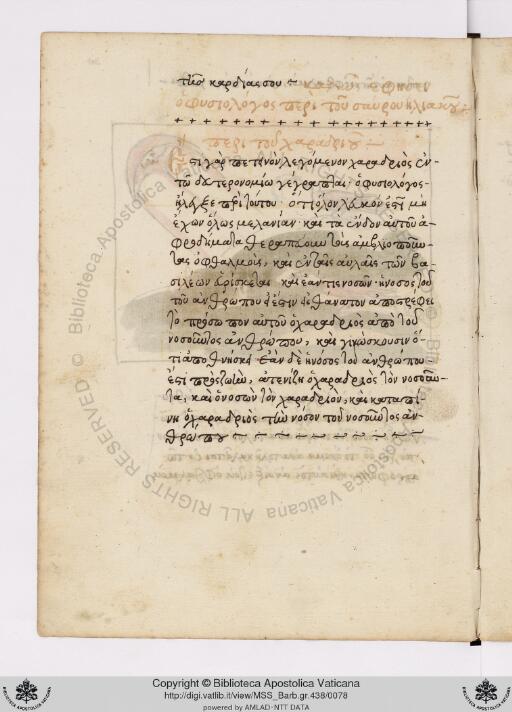 τῆς καρδίας σου ~ καλῶς ἔφησεν
ὁ φυσιολόγος περὶ τοῦ σαυροῦ ἡλιακοῦ
+ + + + + + + + + + + + + + + + + + +
περὶ τοῦ χαραδριοῦ ~
Ἔστι γὰρ πετινὸν λεγόμενον χαραδριὸς ἐν
τῶ δευτερονομίω γέγραπται· ὁ φυσιολόγος
ἔλεξε περὶ τούτου· ὅτι ὁλόλευκόν ἐστι μὴ
ἔχων ὅλως μελανίαν· καὶ τὰ ἔνδον αὐτοῦ ἀ-
φοδεύματα θεραπεύουσι τοὺς ἀμβλυοποῦν-
τας ὀφθαλμοὺς, καὶ ἐν ταῖς αὐλαῖς τῶν βα-
σιλέων εὑρίσκεται· καὶ ἐάν τις νοσῆ· ἡ νόσος τοῦ
τοῦ ἀνθρώπου ἐστὶν εἰς θάνατον ἀποστρέφει
τὸ πρόσωπον αὐτοῦ ὁ χαραδριὸς ἀπὸ τοῦ
νοσοῦντος ἀνθρώπου, καὶ γινώσκουσιν ὅ-
τι ἀποθνήσκει· Ἐὰν δὲ ἡ νόσος τοῦ ἀνθρώπου
ἐστὶ πρὸς ζωὴν, ἀτενίζει ὁ χαραδριὸς τὸν νοσοῦν-
τα, καὶ ὁ νοσῶν τὸν χαραδριὸν, καὶ καταπί-
νει ὁ χαραδριὸς τὴν νόσον τοῦ νοσοῦντος ἀν-
θρώπου ~ ~ ~ ~ ~ ~ ~ ~ ~ ~
© Biblioteca Apostolica Vaticana ALL RIGHTS RESERVED
Copyright © Biblioteca Apostolica Vaticana
http://digi.vatlib.it/view/MSS_Barb.gr.438/0078
powered by AMLAD-NTT DATA